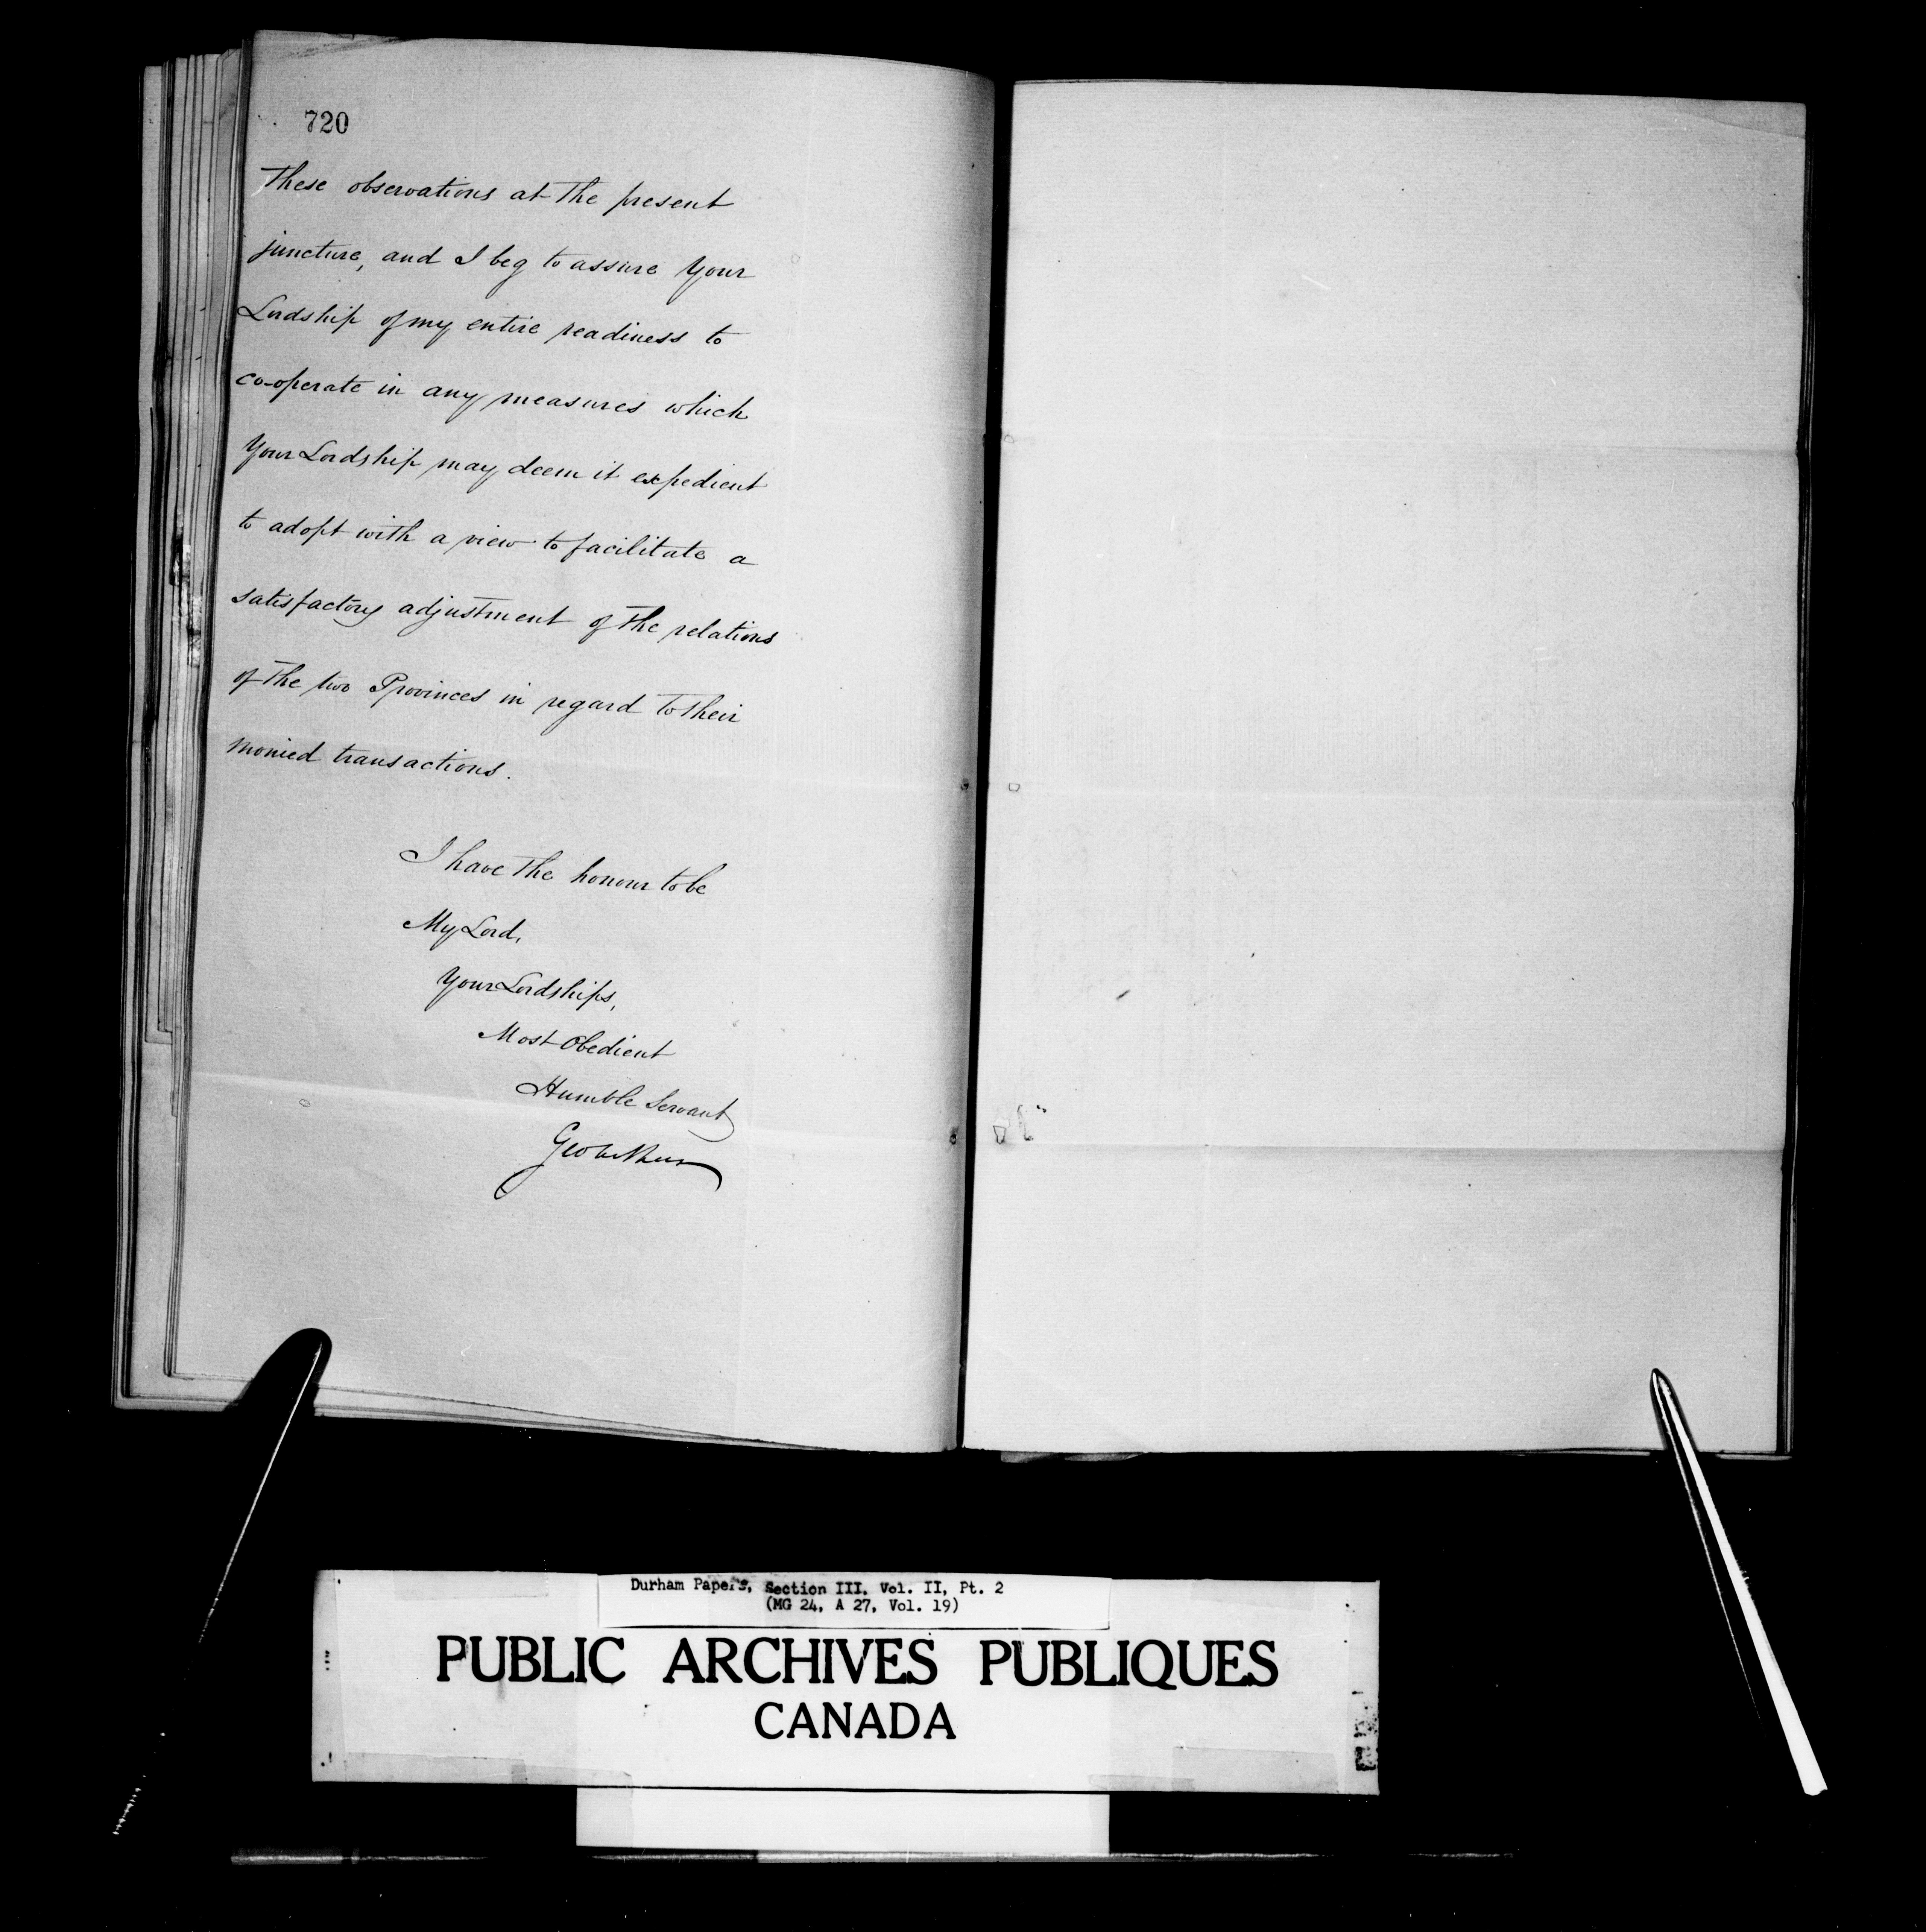 720
These observations at the present
juncture, and I beg to assure Your
Lordship of my entire readiness to
co-operate in any measures which
Your Lordship may deem it expedient
to adopt with a view to facilitate a
satisfactory adjustment of the relations
of the two Provinces in regard to their
monied transactions.
I have the honour to be
My Lord,
Your Lordships,
Most Obedient
Humble Servant
Geo Arthur
Durham Papers, Section III, Vol. II, Pt. 2
(MG 24, A 27, Vol. 19)
PUBLIC ARCHIVES PUBLIQUES
CANADA